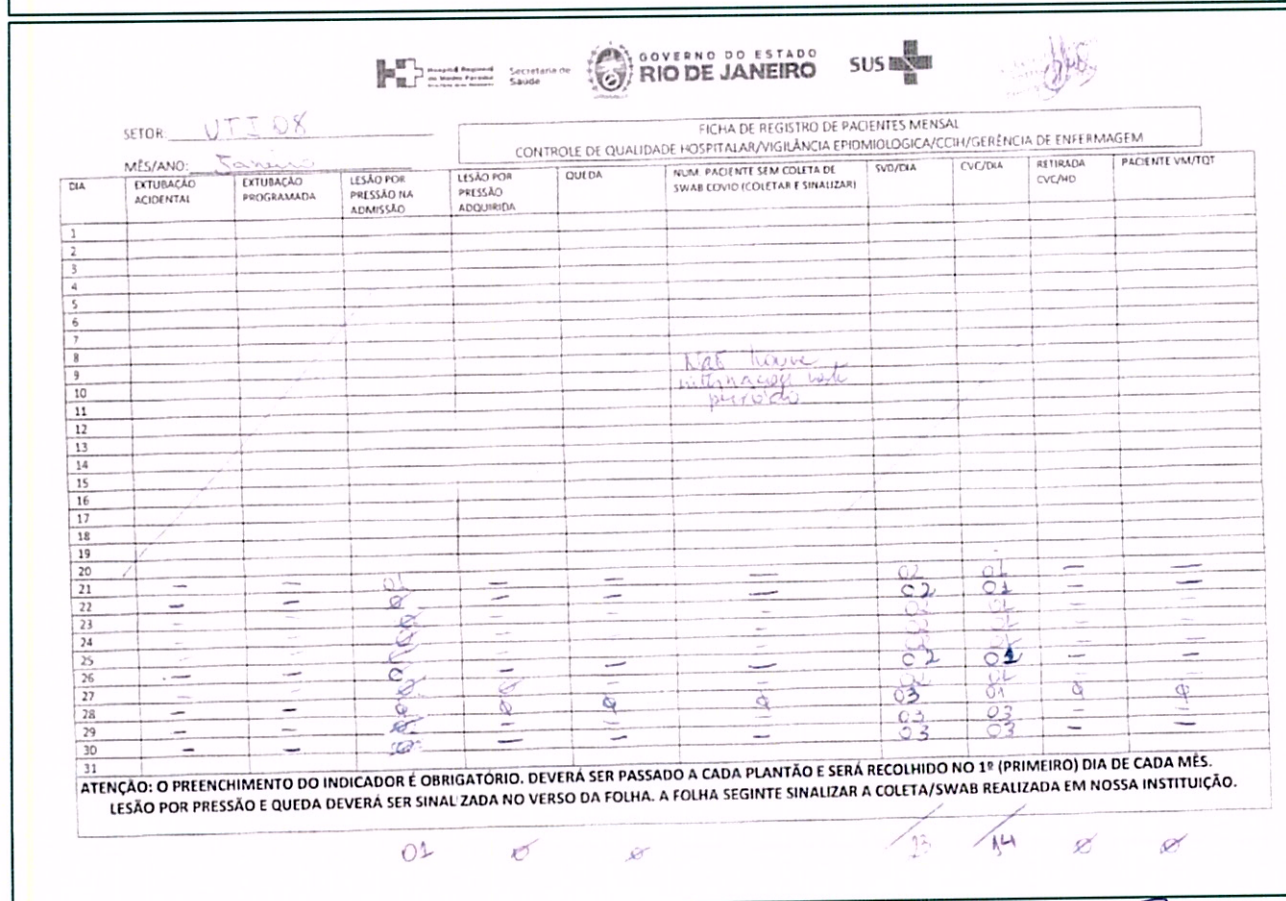 Hospital Regional
do Médio Paraíba
Secretaria de
Saúde
GOVERNO DO ESTADO
RIO DE JANEIRO
SUS
SETOR: UTI 08
MÊS/ANO: Janeiro
FICHA DE REGISTRO DE PACIENTES MENSAL
CONTROLE DE QUALIDADE HOSPITALAR/VIGILÂNCIA EPIDMIOLOGICA/CCIH/GERÊNCIA DE ENFERMAGEM
DIA EXTUBAÇÃO ACIDENTAL EXTUBAÇÃO PROGRAMADA LESÃO POR PRESSÃO NA ADMISSÃO LESÃO POR PRESSÃO ADQUIRIDA QUEDA NUM. PACIENTE SEM COLETA DE SWAB COVID (COLETAR E SINALIZAR) SVD/DIA CVC/DIA RETIRADA CVC/HD PACIENTE VM/TQT
1
2
3
4
5
6
7
8 Não houve
9 internação neste
10 periodo
11
12
13
14
15
16
17
18
19
20
21 — — 01 — — — 02 01 — —
22 — — Ø — — — 02 01 — —
23
24
25
26 — — — — — 02 01 — —
27
28 — — Ø Ø Ø Ø 03 01 Ø Ø
29 — — Ø — — — 03 03 — —
30 — — Ø — — — 03 03 — —
31
ATENÇÃO: O PREENCHIMENTO DO INDICADOR É OBRIGATÓRIO. DEVERÁ SER PASSADO A CADA PLANTÃO E SERÁ RECOLHIDO NO 1º (PRIMEIRO) DIA DE CADA MÊS.
LESÃO POR PRESSÃO E QUEDA DEVERÁ SER SINALIZADA NO VERSO DA FOLHA. A FOLHA SEGINTE SINALIZAR A COLETA/SWAB REALIZADA EM NOSSA INSTITUIÇÃO.
01 Ø Ø 23 14 Ø Ø